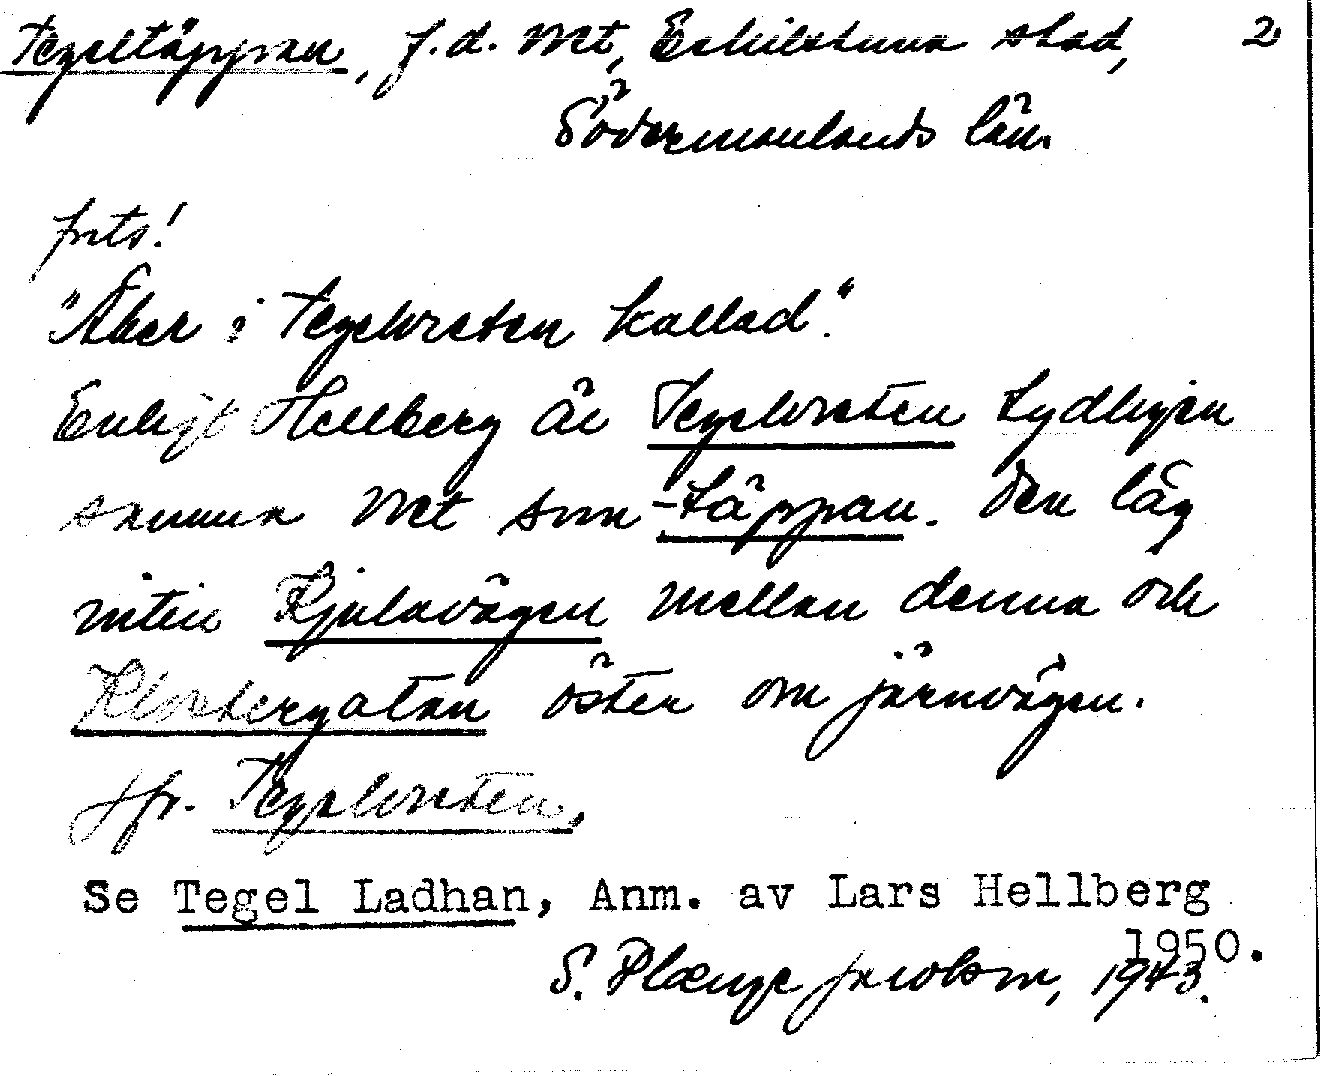 Tegeltäppan, f.d. vret, Eskilstuna stad, 2
Södermanlands län.
forts!
"Åker i Tegelvreten kallad".
Enligt Hellberg är Tegelvreten tydligen
samma vret som -täppan. Den låg
intill Kjulavägen mellan denna och
Klostergatan öster om järnvägen.
Jfr. Tegelvreten,
Se Tegel Ladhan, Anm. av Lars Hellberg
1950.
S. Plænge Jacobson, 1973.